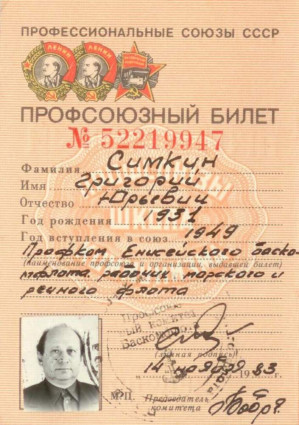 ПРОФЕССИОНАЛЬНЫЕ СОЮЗЫ СССР
ПРОФСОЮЗНЫЙ БИЛЕТ
№ 52219947
Фамилия Симкин
Имя Григорий
Отчество Юрьевич
Год рождения 1931
Год вступления в союз 1949
Профком Енисейского баско-
(наименование профсоюза и организации, выдавшей билет)
мфлота рабочих морского и
речного флота
(личная подпись)
14 ноября 1983
М.П. Председатель
комитета